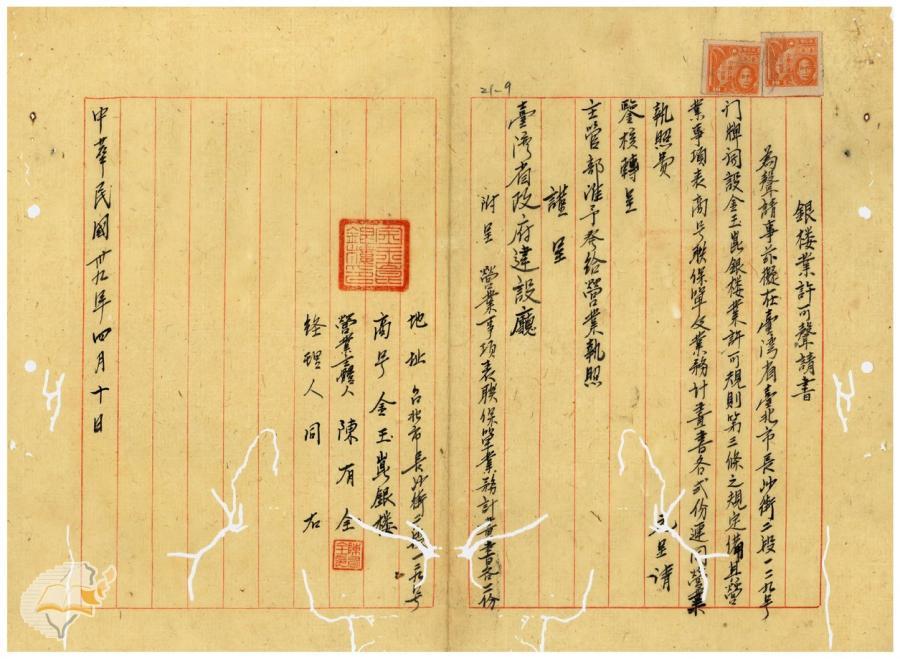 銀楼業許可聲請書
為聲請事茲擬在臺湾省臺北市長沙街二段一二九号
门牌詞設金玉崑銀楼業許可規則第三條之規定備具營
業事項表商号聯保單及業務計畫書各弍份連同營業
執照費 呈請
鑒核轉呈
主管部准予發給營業執照
謹呈
臺湾省政府建設廳
附呈 營業事項表聯保單業務計畫書各二份
地址 台北市長沙街二段一二九号
商号 金玉崑銀楼
營業主體人 陳有全
經理人 同右
中華民國卅九年四月十日
21-9